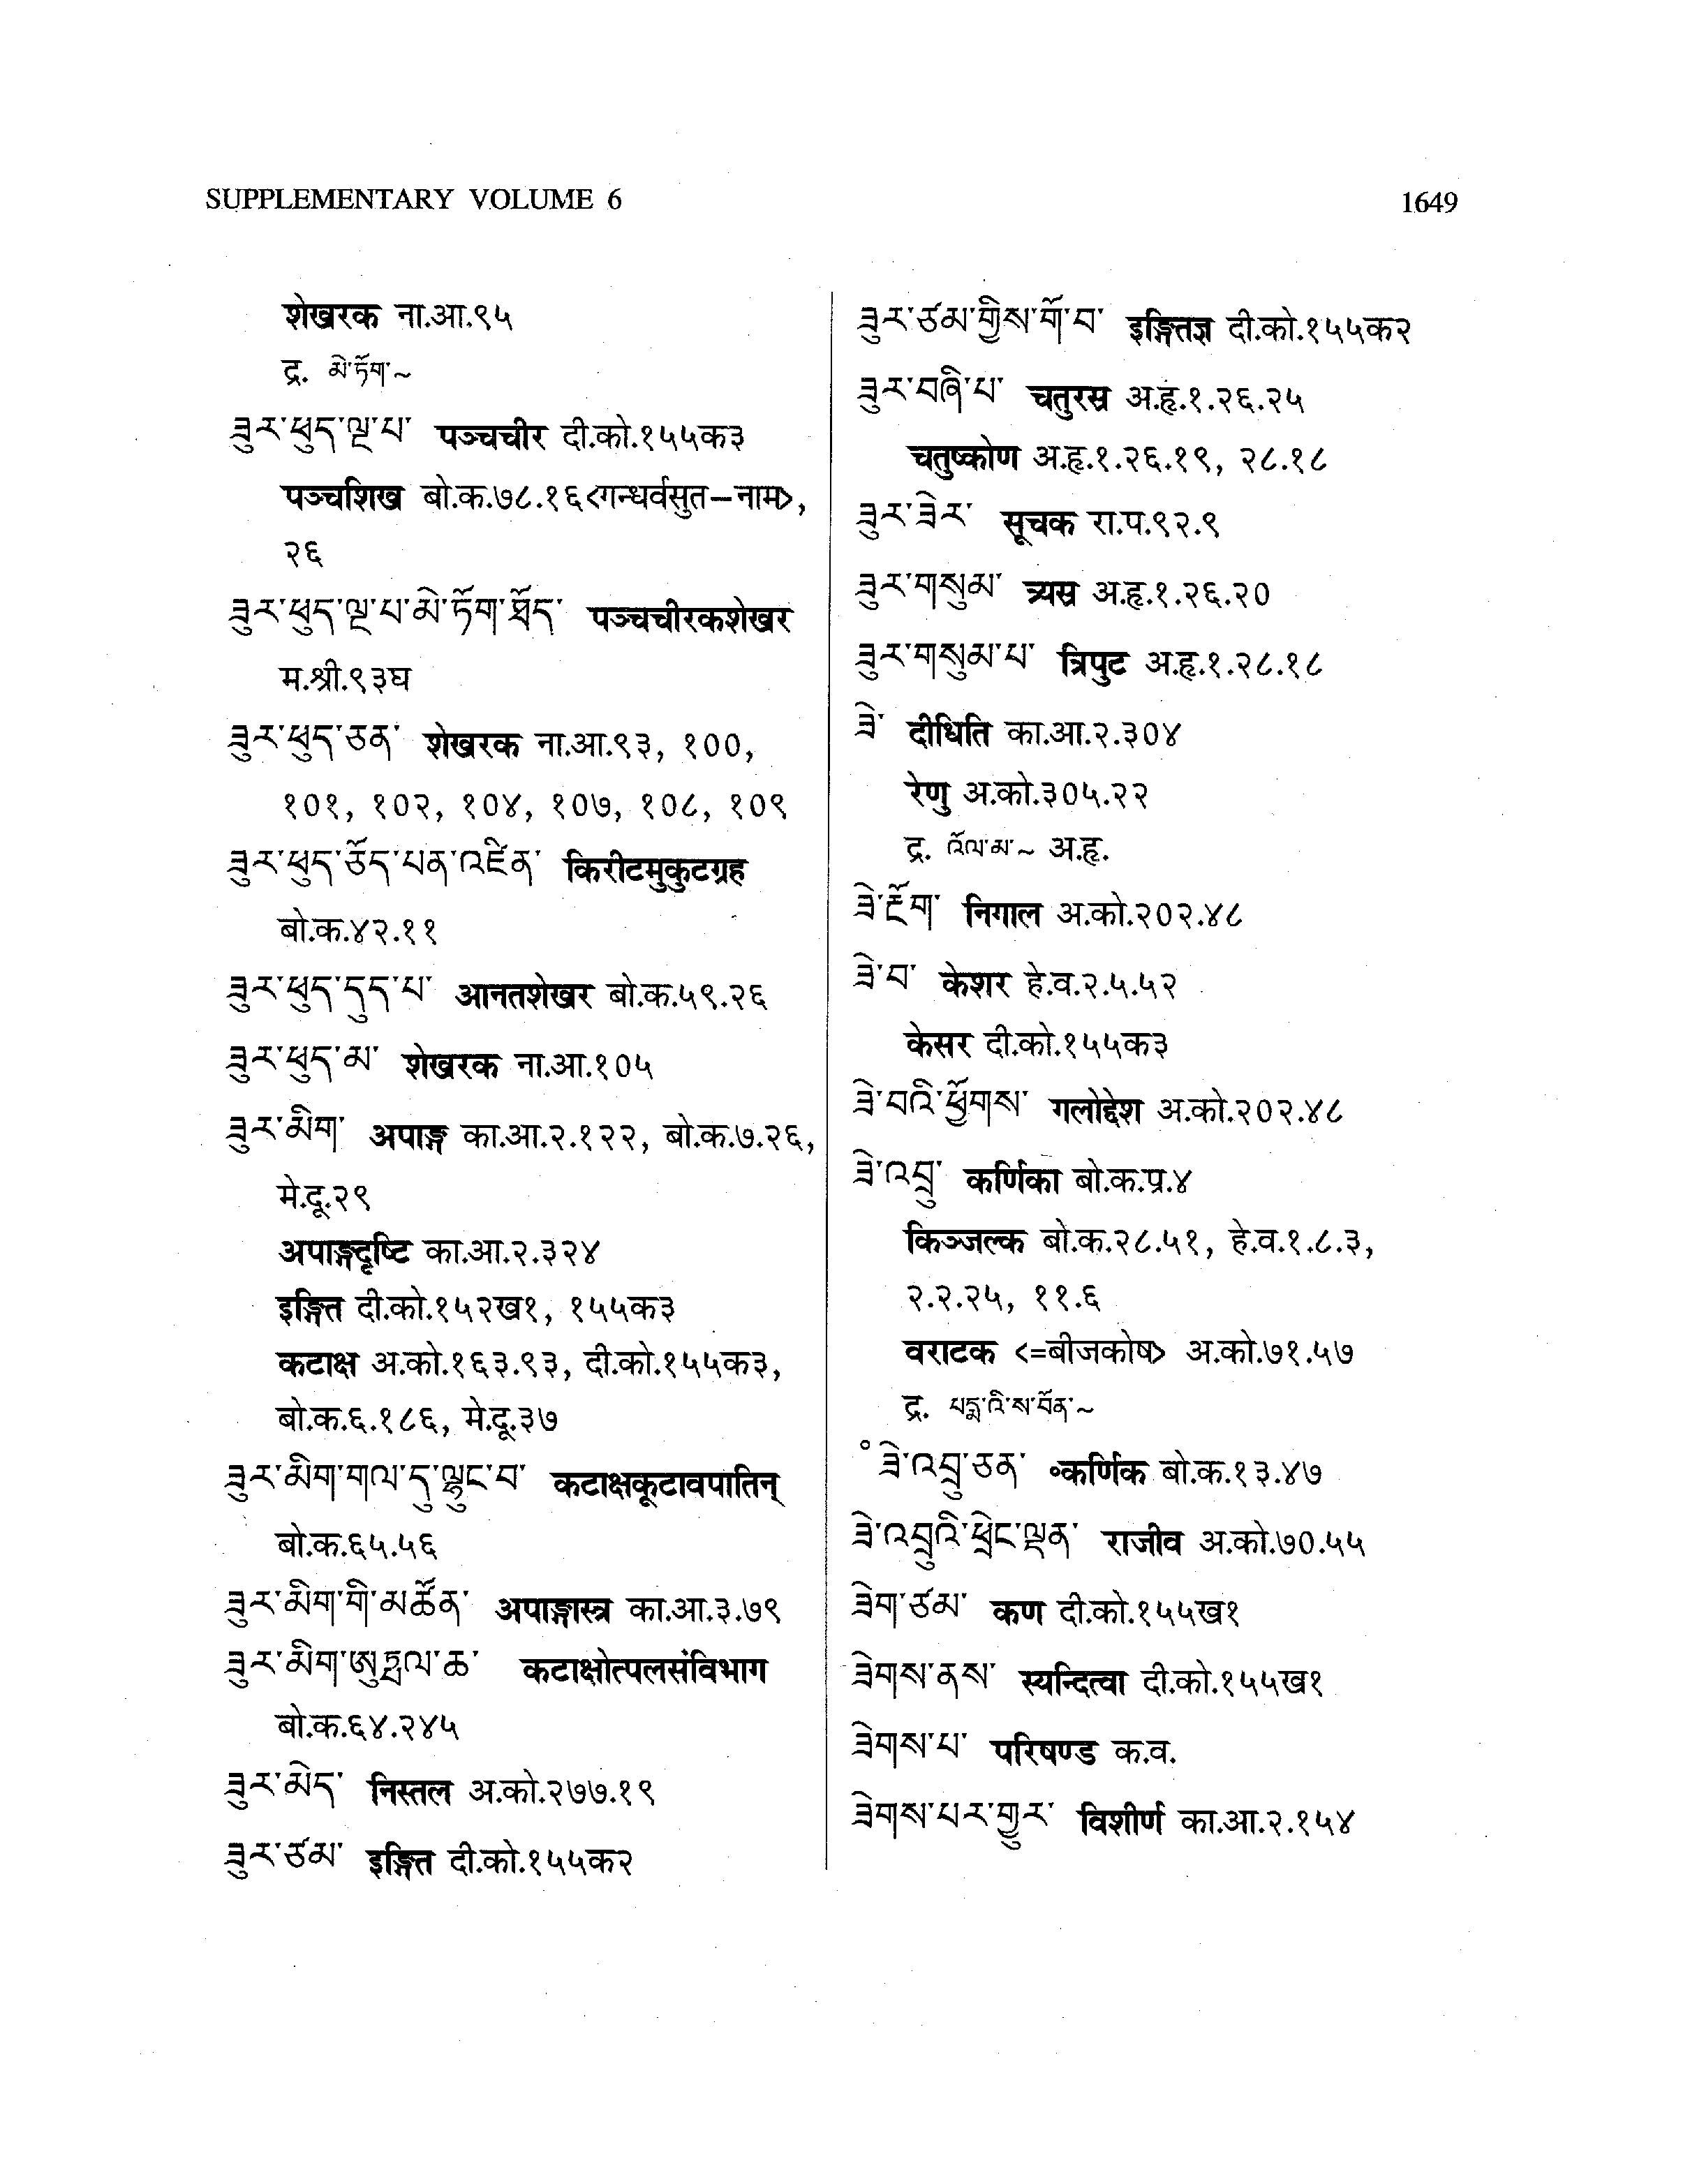 SUPPLEMENTARY VOLUME 6
1649
शेखरक ना.आ.९५
द्र. མེ་ཏོག་~
ཟུར་ཕུད་ལྔ་པ་ पञ्चचीर दी.को.१५५क३
पञ्चशिख बो.क.७८.१६<गन्धर्वसुत–नाम>,
२६
ཟུར་ཕུད་ལྔ་པ་མེ་ཏོག་ཐོད་ पञ्चचीरकशेखर
म.श्री.९३घ
ཟུར་ཕུད་ཅན་ शेखरक ना.आ.९३, १००,
१०१, १०२, १०४, १०७, १०८, १०९
ཟུར་ཕུད་ཅོད་པན་འཛིན་ किरीटमुकुटग्रह
बो.क.४२.११
ཟུར་ཕུད་དུད་པ་ आनतशेखर बो.क.५९.२६
ཟུར་ཕུད་མ་ शेखरक ना.आ.१०५
ཟུར་མིག་ अपाङ्ग का.आ.२.१२२, बो.क.७.२६,
मे.दू.२९
अपाङ्गदृष्टि का.आ.२.३२४
इङ्गित दी.को.१५२ख१, १५५क३
कटाक्ष अ.को.१६३.९३, दी.को.१५५क३,
बो.क.६.१८६, मे.दू.३७
ཟུར་མིག་གལ་དུ་ལྷུང་བ་ कटाक्षकूटावपातिन्
बो.क.६५.५६
ཟུར་མིག་གི་མཚོན་ अपाङ्गास्त्र का.आ.३.७९
ཟུར་མིག་ཨུཏྤལ་ཆ་ कटाक्षोत्पलसंविभाग
बो.क.६४.२४५
ཟུར་མེད་ निस्तल अ.को.२७७.१९
ཟུར་ཙམ་ इङ्गित दी.को.१५५क२
ཟུར་ཙམ་གྱིས་གོ་བ་ इङ्गितज्ञ दी.को.१५५क२
ཟུར་བཞི་པ་ चतुरस्र अ.हृ.१.२६.२५
चतुष्कोण अ.हृ.१.२६.१९, २८.१८
ཟུར་ཟེར་ सूचक रा.प.९२.९
ཟུར་གསུམ་ त्र्यस्र अ.हृ.१.२६.२०
ཟུར་གསུམ་པ་ त्रिपुट अ.हृ.१.२८.१८
ཟེ་ दीधिति का.आ.२.३०४
रेणु अ.को.३०५.२२
द्र. འོལ་མ་~ अ.हृ.
ཟེ་རྫོག་ निगाल अ.को.२०२.४८
ཟེ་བ་ केशर हे.व.२.५.५२
केसर दी.को.१५५क३
ཟེ་བའི་ཕྱོགས་ गलोद्देश अ.को.२०२.४८
ཟེ་འབྲུ་ कर्णिका बो.क.प्र.४
किञ्जल्क बो.क.२८.५१, हे.व.१.८.३,
२.२.२५, ११.६
वराटक <=बीजकोष> अ.को.७१.५७
द्र. པདྨའི་ས་བོན་~
°ཟེ་འབྲུ་ཅན་ ॰कर्णिक बो.क.१३.४७
ཟེ་འབྲུའི་ཕྲེང་ལྡན་ राजीव अ.को.७०.५५
ཟེག་ཙམ་ कण दी.को.१५५ख१
ཟེགས་ནས་ स्यन्दित्वा दी.को.१५५ख१
ཟེགས་པ་ परिषण्ड क.व.
ཟེགས་པར་གྱུར་ विशीर्ण का.आ.२.१५४